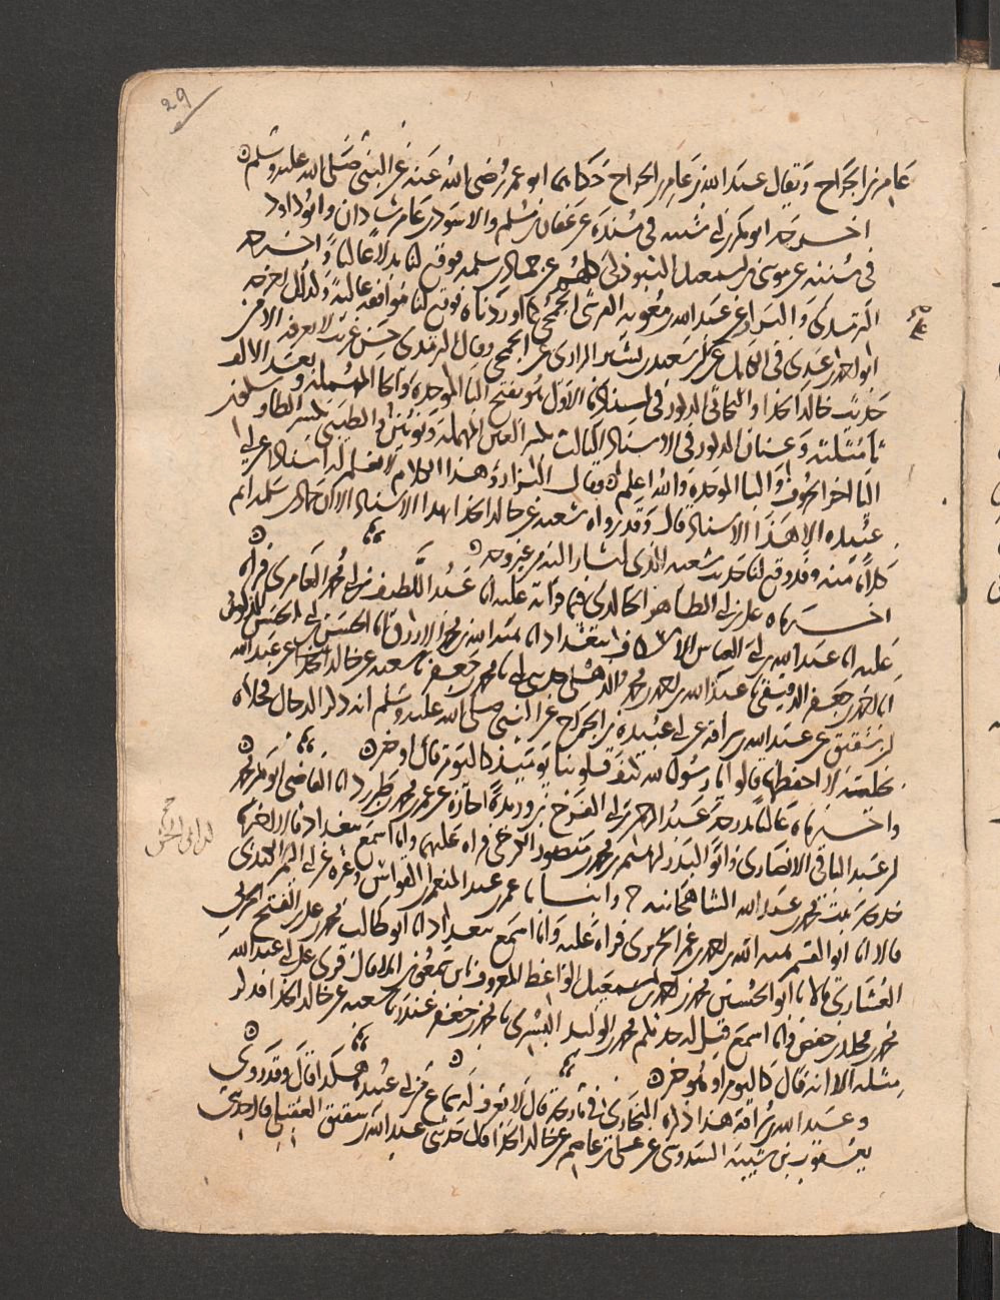 29
عامر بن الجراح ويقال عبد الله بن عامر بن الجراح حكاهما ابو عمر رضي الله عنه عن النبي صلى الله عليه وسلم
اخرجه ابو بكر بن ابي شيبه في مسنده عن عفان بن مسلم والاسود بن عامر شاذان وابو داود
في سننه عن موسى بن اسمعيل التبوذكي كلهم عن حماد بن سلمه فوقع لنا بدلا عاليا واخرجه
الترمذي والبزار عن عبد الله بن معويه القرشي الجمحي كما اوردناه فوقع لنا موافقه عاليه وكذلك اخرجه
ابو احمد بن عدي في الكامل عن بن سعيد بن بشير الرازي عن الجمحي وقال الترمذي حسن غريب لا يعرف الا من
حديث خالد الحذا والثاني المذكور في اسنادنا الاول هو بفتح البا الموحده والحا المهمله وبعد الالف
ثا مثلثه وعتاب المذكور في الاسناد الثالث العين المهمله في الطيبي بكسر الطا وسكون
اليا اخر الحروف والبا الموحده والله اعلم وقال البزار وهذا الكلام لا نعلم له اسنادا عن ابي
عبيده الا هذا الاسناد قال وقد رواه شعبه عن خالد الحذا بهذا الاسناد الا ان حماد بن سلمه اتم
كلاما منه وقد وقع لنا حديث شعبه الذي اشار اليه من غير وجه
اخبرناه علي بن ابي الطاهر الخالدي فيما قرأته عليه انا عبد اللطيف بن ابي محمد العامري قراة
عليه انا عبد الله بن ابي العباس ببغداد انا عبد الله بن محمد الازرق انا الحسن بن ابي الحسن
انا احمد بن جعفر الدقيقي نا عبد الله بن احمد بن محمد والد هشلي حدثني ابي نا محمد بن جعفر نا شعبه عن خالد الحذا عن عبد الله
بن شقيق عن عبد الله بن سراقه عن ابي عبيده بن الجراح عن النبي صلى الله عليه وسلم انه ذكر الدجال فحلاه
بحليه لا احفظها قالوا يا رسول الله كيف قلوبنا يومئذ كاليوم قال او خير
واخبرناه عاليا بدرجه عبد الرحمن بن ابي الفرج اجازه عن عمر بن محمد بن طبرزد انا القاضي ابو بكر محمد
بن عبد الباقي الانصاري وابو البدر ابراهيم بن محمد بن منصور الكرخي قراة عليهما وانا اسمع ببغداد قالا اخبرتنا
خديجه بنت محمد بن عبد الله الشاهجانيه ح وانبانا عمر بن عبد المنعم القواس وغيره عن ابي اليمن الكندي
قال انا ابو القسم هبه الله بن احمد بن عمر الحريري قراة عليه وانا اسمع ببغداد انا ابو طالب محمد بن علي بن الفتح الحربي
العشاري قالا نا ابو الحسين محمد بن احمد بن اسمعيل الواعظ المعروف بابن سمعون املا قال قرئ على ابي عبد الله
محمد بن مخلد بن حفص وانا اسمع قيل له حدثكم محمد بن الوليد البسري نا محمد بن جعفر غندر نا شعبه عن خالد الحذا فذكر
مثله الا انه قال كاليوم او هو خير
وعبد الله بن سراقه هذا ذكره البخاري في تاريخه قال لا يعرف له سماع من ابي عبيده هكذا قال وقد روى
يعقوب بن شيبه السدوسي عن علي بن عاصم عن خالد الحذا قال حدثني عبد الله بن شقيق العقيلي قال حدثني